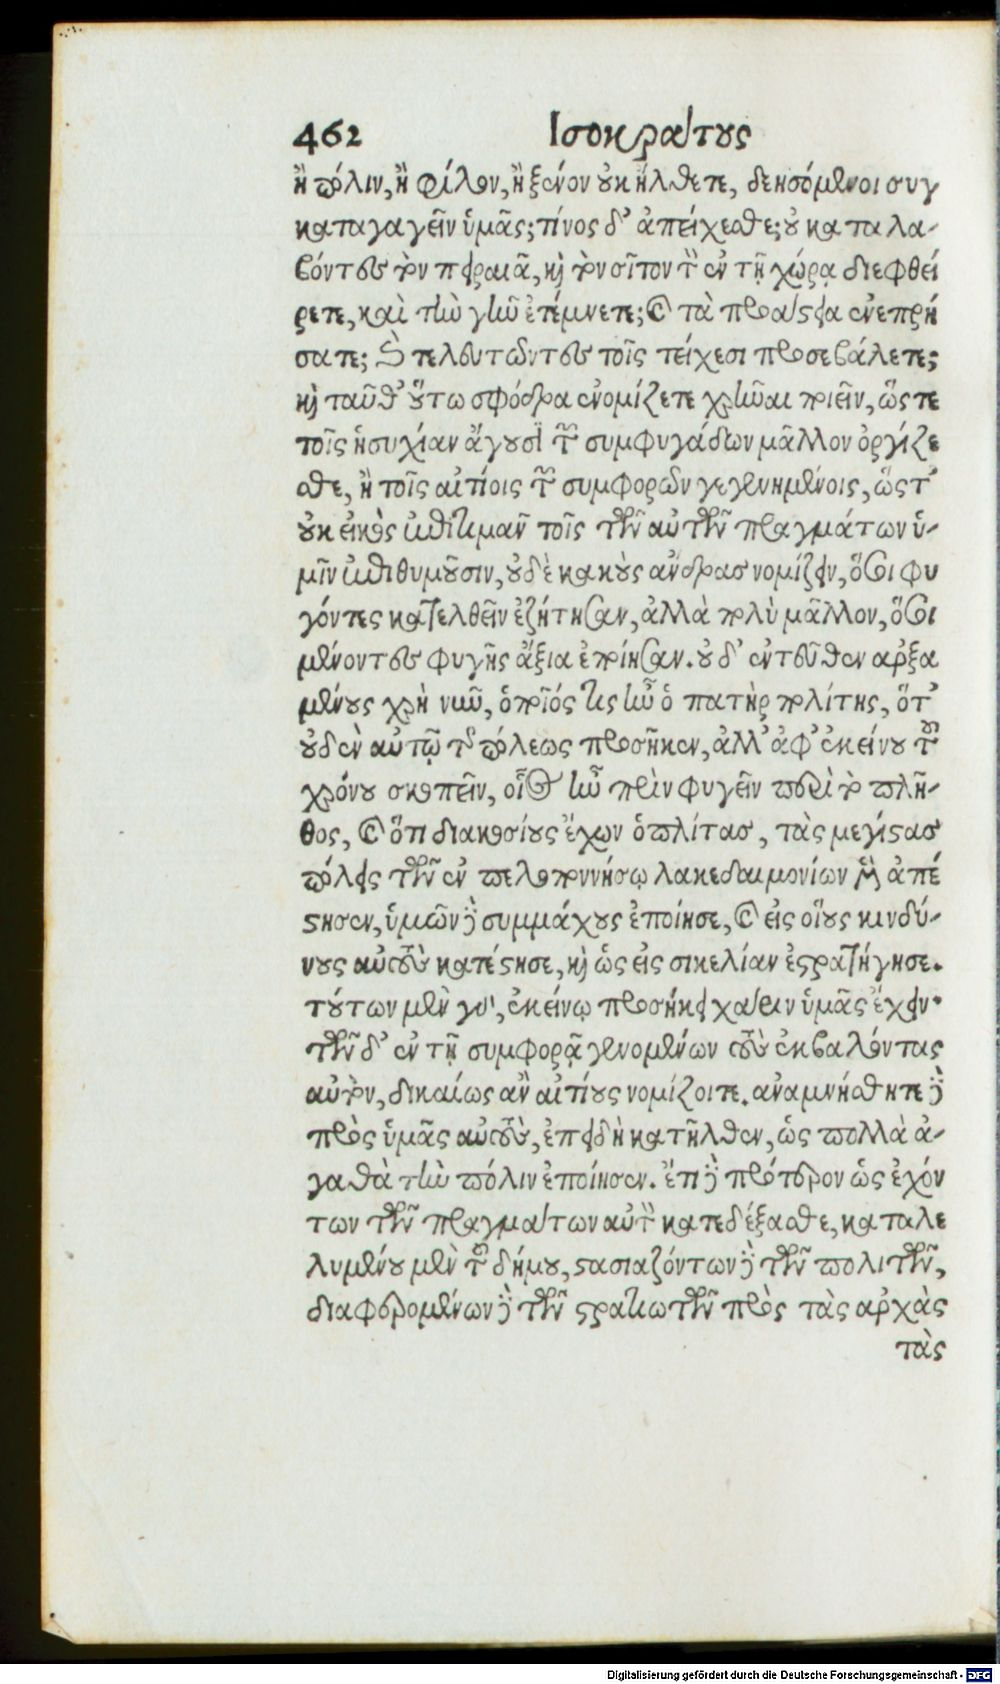 462 Ισοκράτους
ἢ πόλιν, ἢ φίλον, ἢ ξένον οὐκ ἤλθετε, δεησόμενοι συγ
καταγαγεῖν ὑμᾶς; τίνος δ' ἀπείχεσθε; οὐ καταλα-
βόντες τὸν πειραιᾶ, καὶ τὸν σῖτον τὸν ἐν τῇ χώρᾳ διεφθεί
ρετε, καὶ τὴν γῆν ἐτέμνετε; καὶ τὰ προάστεια ἐνεπρή
σατε; καὶ τελευτῶντες τοῖς τείχεσι προσεβάλετε;
καὶ ταῦθ' οὕτω σφόδρα ἐνομίζετε χρῆναι ποιεῖν, ὥστε
τοῖς ἡσυχίαν ἄγουσι τῶν συμφυγάδων μᾶλλον ὀργίζε
σθε, ἢ τοῖς αἰτίοις τῶν συμφορῶν γεγενημένοις, ὥστ'
οὐκ εἰκὸς ἐπιτιμᾶν τοῖς τῶν αὐτῶν πραγμάτων ὑ-
μῖν ἐπιθυμοῦσιν, οὐδὲ κακοὺς ἄνδρας νομίζειν, ὅσοι φυ
γόντες κατελθεῖν ἐζήτησαν, ἀλλὰ πολὺ μᾶλλον, ὅσοι
μένοντες φυγῆς ἄξια ἐποίησαν. οὐδ' ἐντεῦθεν ἀρξα
μένους χρὴ νῦν, ὁποῖός τις ἦν ὁ πατὴρ πολίτης, ὅτ'
οὐδὲν αὐτῷ τῆς πόλεως προσῆκεν, ἀλλ' ἀφ' ἐκείνου τοῦ
χρόνου σκοπεῖν, οἷος ἦν πρὶν φυγεῖν περὶ τὸ πλῆ-
θος, καὶ ὅτι διακοσίους ἔχων ὁπλίτας, τὰς μεγίστας
πόλεις τῶν ἐν πελοποννήσῳ λακεδαιμονίων μὲν ἀπέ
στησεν, ὑμῶν δὲ συμμάχους ἐποίησε, καὶ εἰς οἵους κινδύ-
νους αὐτοὺς κατέστησε, καὶ ὡς εἰς σικελίαν ἐστρατήγησε.
τούτων μὲν γὰρ, ἐκείνῳ προσήκει χάριν ὑμᾶς ἔχειν·
τῶν δ' ἐν τῇ συμφορᾷ γενομένων τοὺς ἐκβαλόντας
αὐτὸν, δικαίως ἂν αἰτίους νομίζοιτε. ἀναμνήσθητε δὲ
πρὸς ὑμᾶς αὐτοὺς, ἐπειδὴ κατῆλθεν, ὡς πολλὰ ἀ-
γαθὰ τὴν πόλιν ἐποίησεν. ἔτι δὲ πρότερον ὡς ἐχόν
των τῶν πραγμάτων αὐτὸν κατεδέξασθε, καταλε
λυμένου μὲν τοῦ δήμου, στασιαζόντων δὲ τῶν πολιτῶν,
διαφερομένων δὲ τῶν στρατιωτῶν πρὸς τὰς ἀρχὰς
τὰς
Digitalisierung gefördert durch die Deutsche Forschungsgemeinschaft - DFG